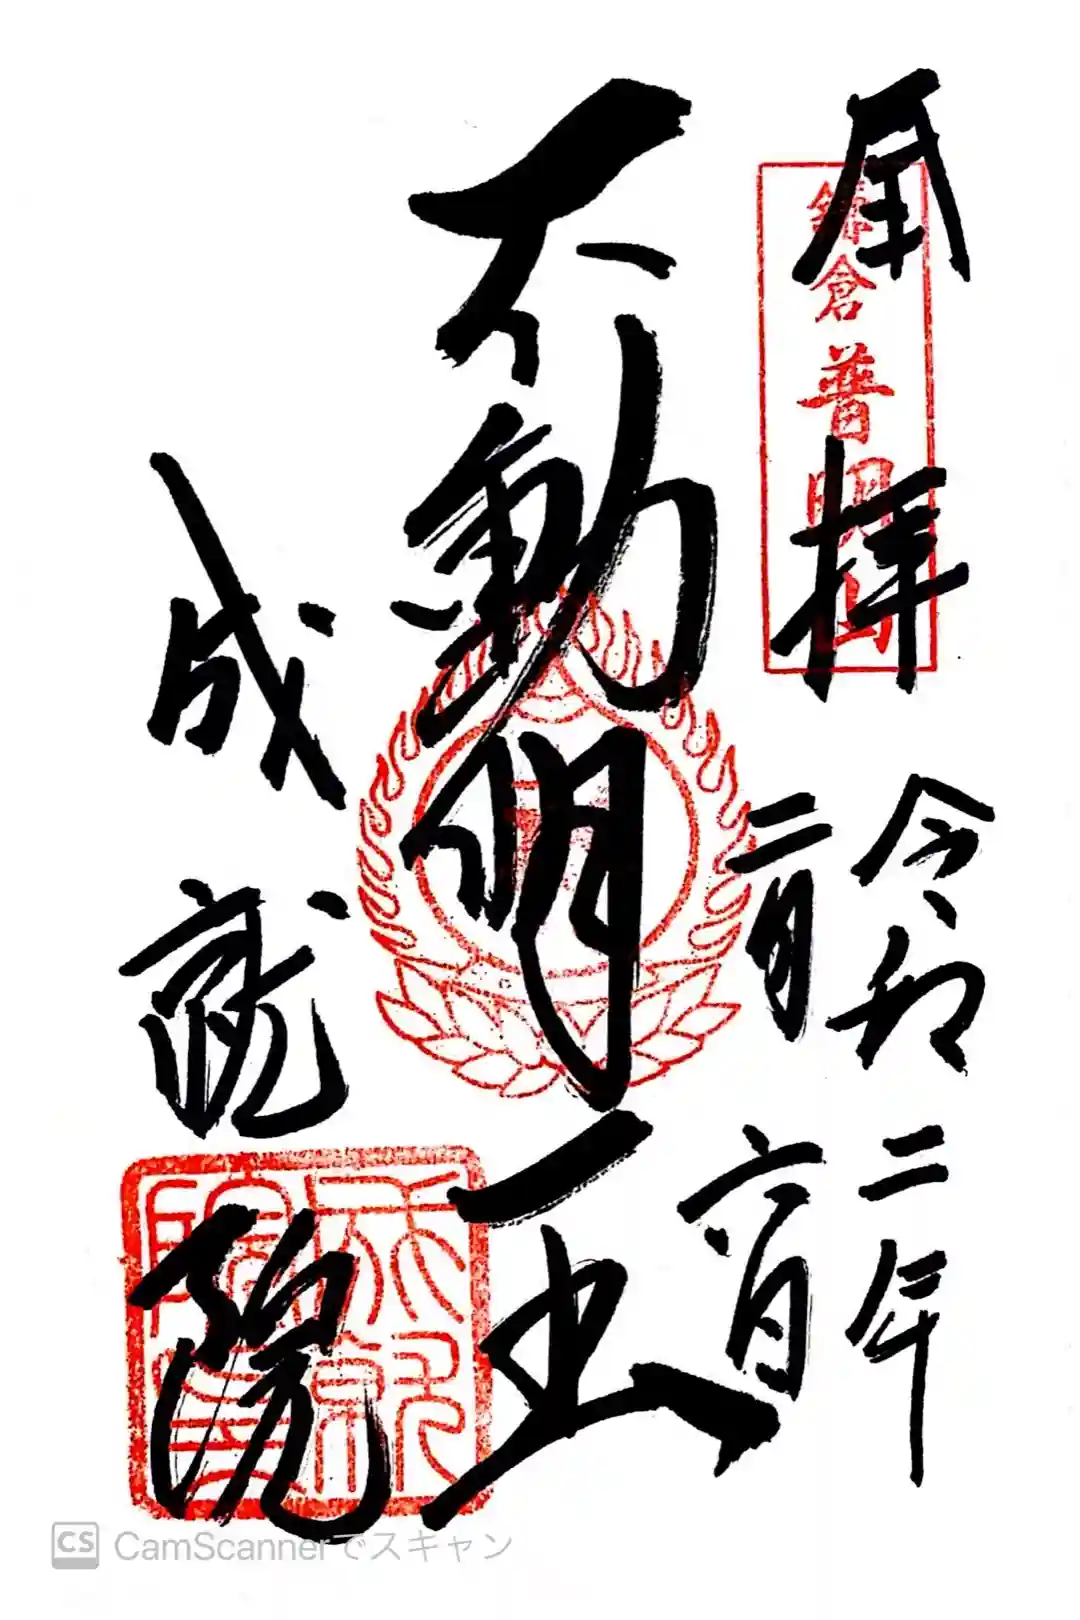 奉拝
鎌倉普明山
令和二年
二月六日
不動明王
成就院
成就
院
CS CamScannerでスキャン